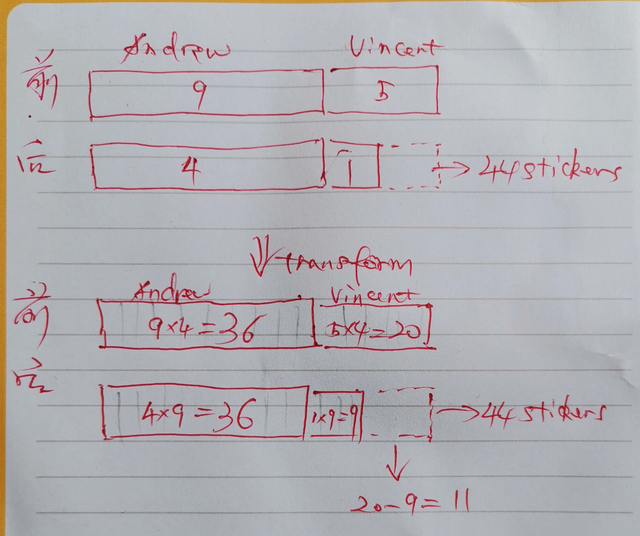 Andrew Vincent
前 9 5
后 4 1 → 44 stickers
⇓ transform
Andrew Vincent
前 9×4=36 5×4=20
后 4×9=36 1×9=9 → 44 stickers
↓
20-9=11